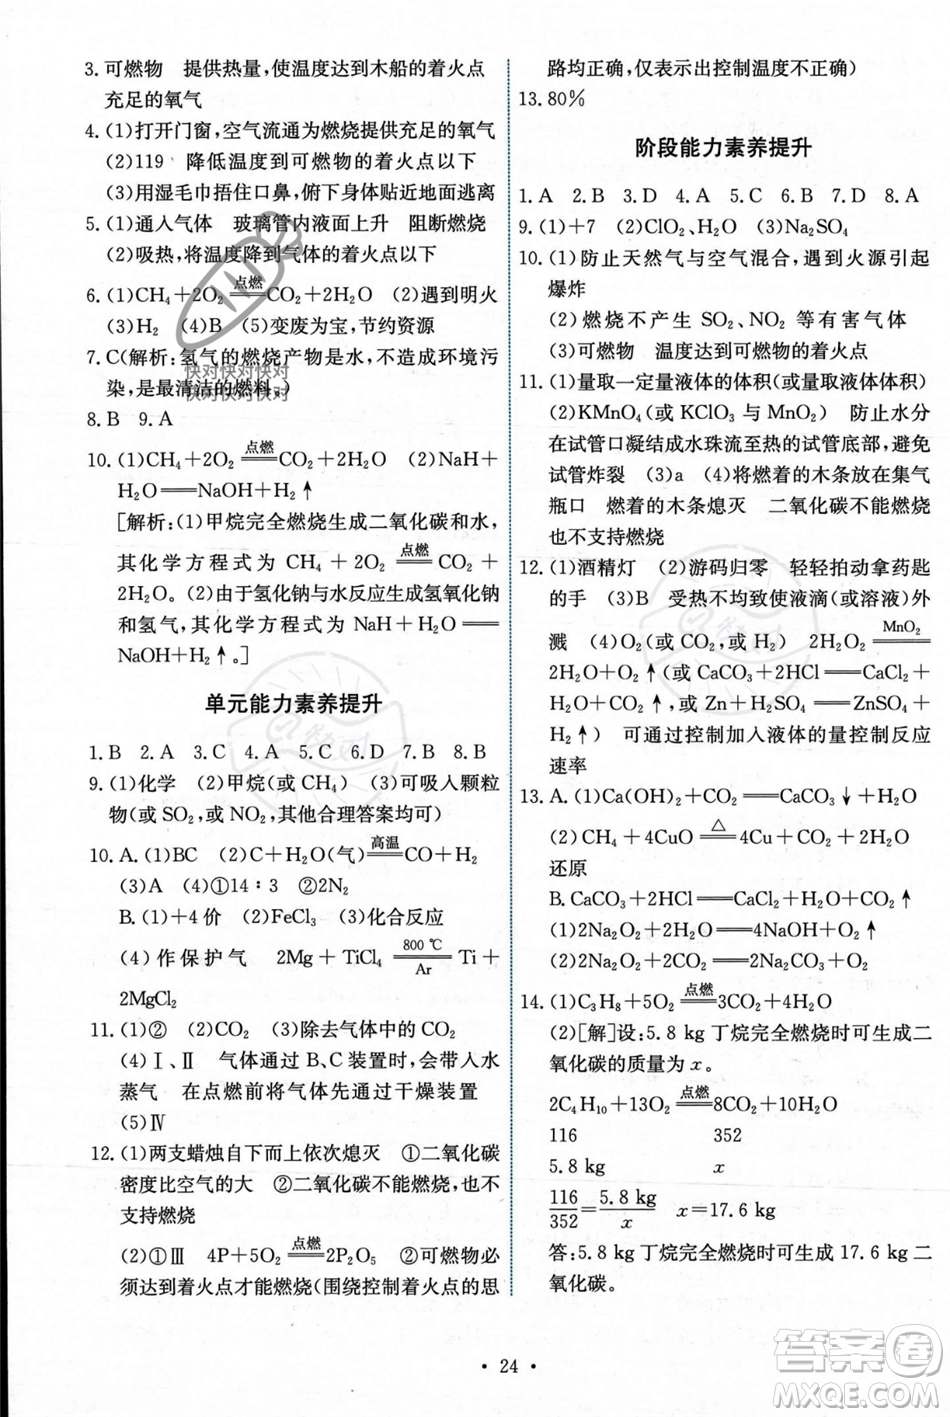 3. 可燃物　提供热量,使温度达到木船的着火点
充足的氧气
4. (1)打开门窗,空气流通为燃烧提供充足的氧气
(2)119　降低温度到可燃物的着火点以下
(3)用湿毛巾捂住口鼻,俯下身体贴近地面逃离
5. (1)通入气体　玻璃管内液面上升　阻断燃烧
(2)吸热,将温度降到气体的着火点以下
6. (1)CH₄+2O₂ ══点燃══ CO₂+2H₂O　(2)遇到明火
(3)H₂　(4)B　(5)变废为宝,节约资源
7. C(解析:氢气的燃烧产物是水,不造成环境污
染,是最清洁的燃料。)
快对快对快对
快对快对快对
8. B　9. A
10. (1)CH₄+2O₂ ══点燃══ CO₂+2H₂O　(2)NaH+
H₂O ═══ NaOH+H₂↑
[解析:(1)甲烷完全燃烧生成二氧化碳和水,
其化学方程式为 CH₄+2O₂ ══点燃══ CO₂+
2H₂O。(2)由于氢化钠与水反应生成氢氧化钠
和氢气,其化学方程式为 NaH+H₂O ═══
NaOH+H₂↑。]
单元能力素养提升
1. B　2. A　3. C　4. C　5. C　6. D　7. B　8. B
9. (1)化学　(2)甲烷(或 CH₄)　(3)可吸入颗粒
物(或 SO₂,或 NO₂,其他合理答案均可)
10. A. (1)BC　(2)C+H₂O(气) ══高温══ CO+H₂
(3)A　(4)①14∶3　②2N₂
B. (1)+4 价　(2)FeCl₃　(3)化合反应
(4)作保护气　2Mg+TiCl₄ ══800 ℃/Ar══ Ti+
2MgCl₂
11. (1)②　(2)CO₂　(3)除去气体中的 CO₂
(4)Ⅰ、Ⅱ　气体通过 B、C 装置时,会带入水
蒸气　在点燃前将气体先通过干燥装置
(5)Ⅳ
12. (1)两支蜡烛自下而上依次熄灭　①二氧化碳
密度比空气的大　②二氧化碳不能燃烧,也不
支持燃烧
(2)①Ⅲ　4P+5O₂ ══点燃══ 2P₂O₅　②可燃物必
须达到着火点才能燃烧(围绕控制着火点的思
路均正确,仅表示出控制温度不正确)
13. 80%
阶段能力素养提升
1. A　2. B　3. D　4. A　5. C　6. B　7. D　8. A
9. (1)+7　(2)ClO₂　(3)Na₂SO₄
10. (1)防止天然气与空气混合,遇到火源引起
爆炸
(2)燃烧不产生 SO₂、NO₂ 等有害气体
(3)可燃物　温度达到可燃物的着火点
11. (1)量取一定量液体的体积(或量取液体体积)
(2)KMnO₄(或 KClO₃ 与 MnO₂)　防止水分
在试管口凝结成水珠流至热的试管底部,避免
试管炸裂　(3)a　(4)将燃着的木条放在集气
瓶口　燃着的木条熄灭　二氧化碳不能燃烧
也不支持燃烧
12. (1)酒精灯　(2)游码归零　轻轻拍动拿药匙
的手　(3)B　受热不均致使液滴(或溶液)外
溅　(4)O₂(或 CO₂,或 H₂)　2H₂O₂ ══MnO₂══
2H₂O+O₂↑(或 CaCO₃+2HCl ═══ CaCl₂+
H₂O+CO₂↑,或 Zn+H₂SO₄ ═══ ZnSO₄+
H₂↑)　可通过控制加入液体的量控制反应
速率
13. A. (1)Ca(OH)₂+CO₂ ═══ CaCO₃↓+H₂O
(2)CH₄+4CuO ══△══ 4Cu+CO₂+2H₂O
还原
B. CaCO₃+2HCl ═══ CaCl₂+H₂O+CO₂↑
(1)2Na₂O₂+2H₂O ═══ 4NaOH+O₂↑
(2)2Na₂O₂+2CO₂ ═══ 2Na₂CO₃+O₂
14. (1)C₃H₈+5O₂ ══点燃══ 3CO₂+4H₂O
(2)[解]设:5.8 kg 丁烷完全燃烧时可生成二
氧化碳的质量为 x。
2C₄H₁₀+13O₂ ══点燃══ 8CO₂+10H₂O
116　352
5.8 kg　x
116/352=5.8 kg/x　x=17.6 kg
答:5.8 kg 丁烷完全燃烧时可生成 17.6 kg 二
氧化碳。
· 24 ·
答案圈
MXQE.COM